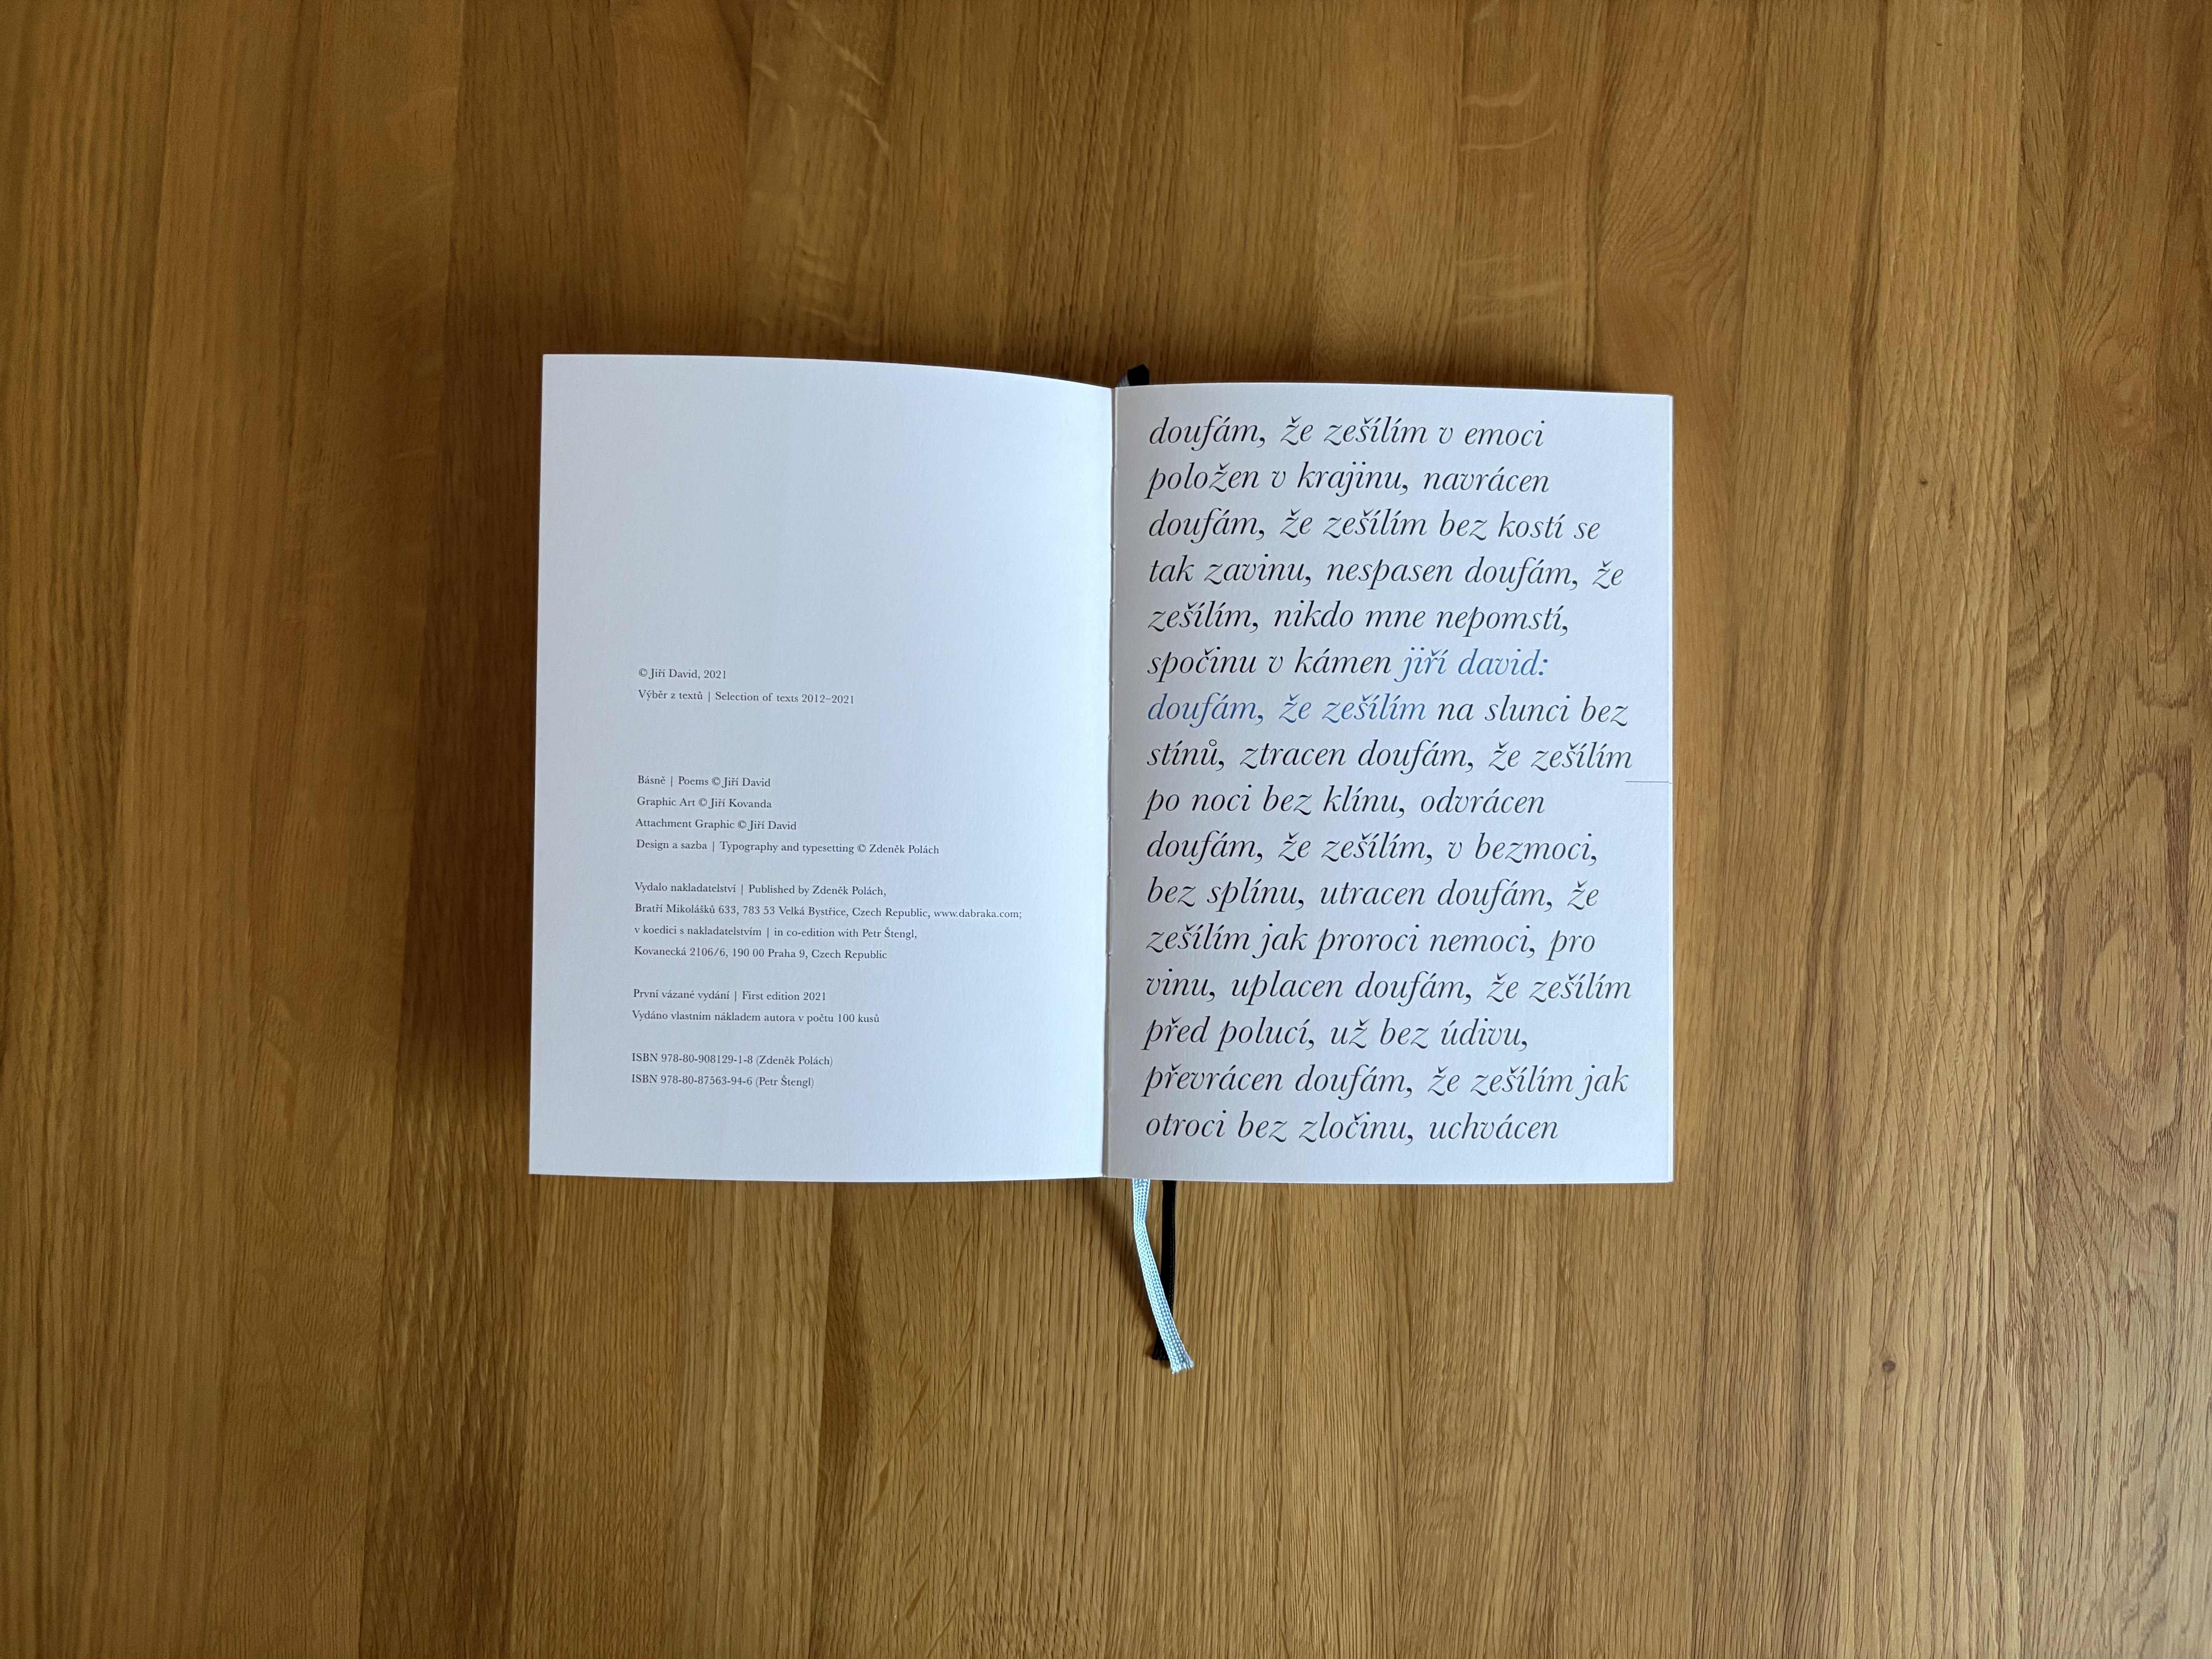 © Jiří David, 2021
Výběr z textů | Selection of texts 2012–2021
Básně | Poems © Jiří David
Graphic Art © Jiří Kovanda
Attachment Graphic © Jiří David
Design a sazba | Typography and typesetting © Zdeněk Polách
Vydalo nakladatelství | Published by Zdeněk Polách,
Bratří Mikolášků 633, 783 53 Velká Bystřice, Czech Republic, www.dabraka.com;
v koedici s nakladatelstvím | in co-edition with Petr Štengl,
Kovanecká 2106/6, 190 00 Praha 9, Czech Republic
První vázané vydání | First edition 2021
Vydáno vlastním nákladem autora v počtu 100 kusů
ISBN 978-80-908129-1-8 (Zdeněk Polách)
ISBN 978-80-87563-94-6 (Petr Štengl)
doufám, že zešílím v emoci
položen v krajinu, navrácen
doufám, že zešílím bez kostí se
tak zavinu, nespasen doufám, že
zešílím, nikdo mne nepomstí,
spočinu v kámen jiří david:
doufám, že zešílím na slunci bez
stínů, ztracen doufám, že zešílím
po noci bez klínu, odvrácen
doufám, že zešílím, v bezmoci,
bez splínu, utracen doufám, že
zešílím jak proroci nemoci, pro
vinu, uplacen doufám, že zešílím
před polucí, už bez údivu,
převrácen doufám, že zešílím jak
otroci bez zločinu, uchvácen